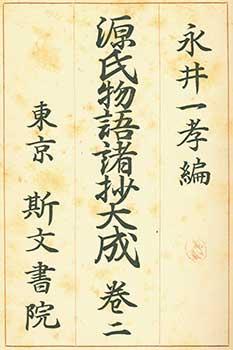 永井一孝編
源氏物語諸抄大成 巻二
東京 斯文書院